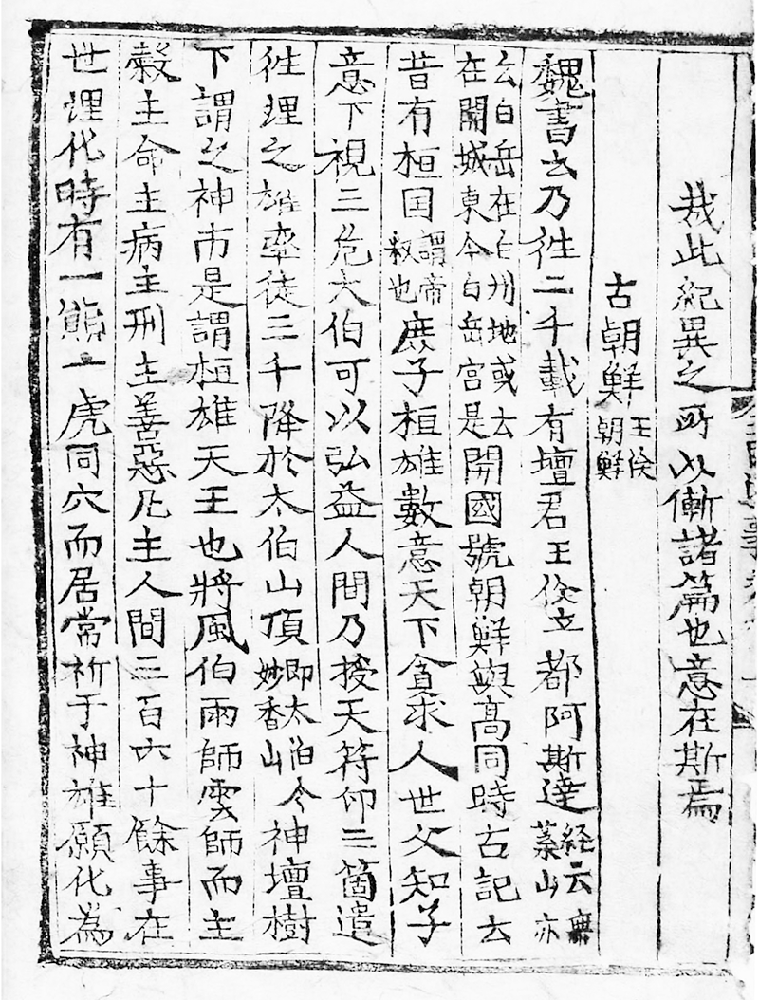 㦲此紀異之所以慚諸篇也意在斯焉
古朝鮮王俭朝鮮
魏書云乃徃二千載有壇君王俭立都阿斯達経云無葉山亦
云白岳在白州地或云在開城東今白岳宮是開國號朝鮮與高同時古記云
昔有桓囯謂帝釈也庶子桓雄數意天下貪求人世父知子
意下視三危太伯可以弘益人間乃授天符印三箇遣
徃理之雄率徒三千降於太伯山頂即太伯今妙香山神壇樹
下謂之神市是謂桓雄天王也將風伯雨師雲師而主
糓主命主病主刑主善惡凡主人間三百六十餘事在
世理化時有一熊一虎同穴而居常祈于神雄願化為